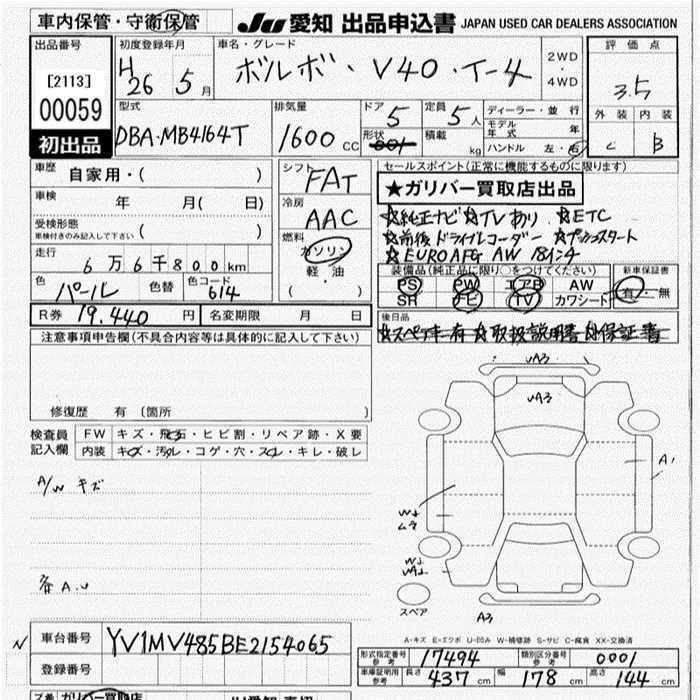 車内保管・守衛保管
JU 愛知 出品申込書 JAPAN USED CAR DEALERS ASSOCIATION
出品番号
[2113]
00059
初出品
初度登録年月
H 26 5 月
車名・グレード
ボルボ・V40・T-4
2WD
4WD
評価点
3.5
外装 内装
C B
型式
DBA-MB4164T
排気量
1600 CC
ドア 5
形状
定員 5 人
積載 kg
ディーラー・並行
モデル年式 年
ハンドル 左・右
車歴
自家用・( )
車検 年 月( 日)
受検形態
車検付きのみ記入して下さい ( )
走行
6万6千800km
色 パール 色替 色コード 614
シフト
FAT
冷房
AAC
燃料
ガソリン
軽・油
( )
R券 19,440 円 名変期限 月 日
セールスポイント(正常に機能するものに限ります)
★ガリバー買取店出品
☆純正ナビ ☆TVあり ☆ETC
☆前後ドライブレコーダー ☆プッシュスタート
☆EUROAFG AW 18インチ
装備品(純正品に限り○をつけてください)
PS PW エアB AW
SR ナビ TV カワシート
新車保証書
有・無
後日品
☆スペアキー有 ☆取扱説明書 ☆保証書
注意事項申告欄(不具合内容等は具体的に記入して下さい)
修復歴 有 (箇所 )
検査員記入欄
FW キズ・飛石・ヒビ割・リペア跡・X要
内装 キズ・汚れ・コゲ・穴・スレ・キレ・破レ
A/W キズ
各A.U
A3
A3
A1
ムラ
スペア
A3
A-キズ E-エクボ U-凹み W-補修跡 S-サビ C-腐食 XX-交換済
N 車台番号 YV1MV485BE2154065
登録番号
形式指定番号 参考 17494 類別区分番号 参考 0001
車庫証明用 参考 長さ 437 cm 幅 178 cm 高さ 144 cm
ガリバー買取店